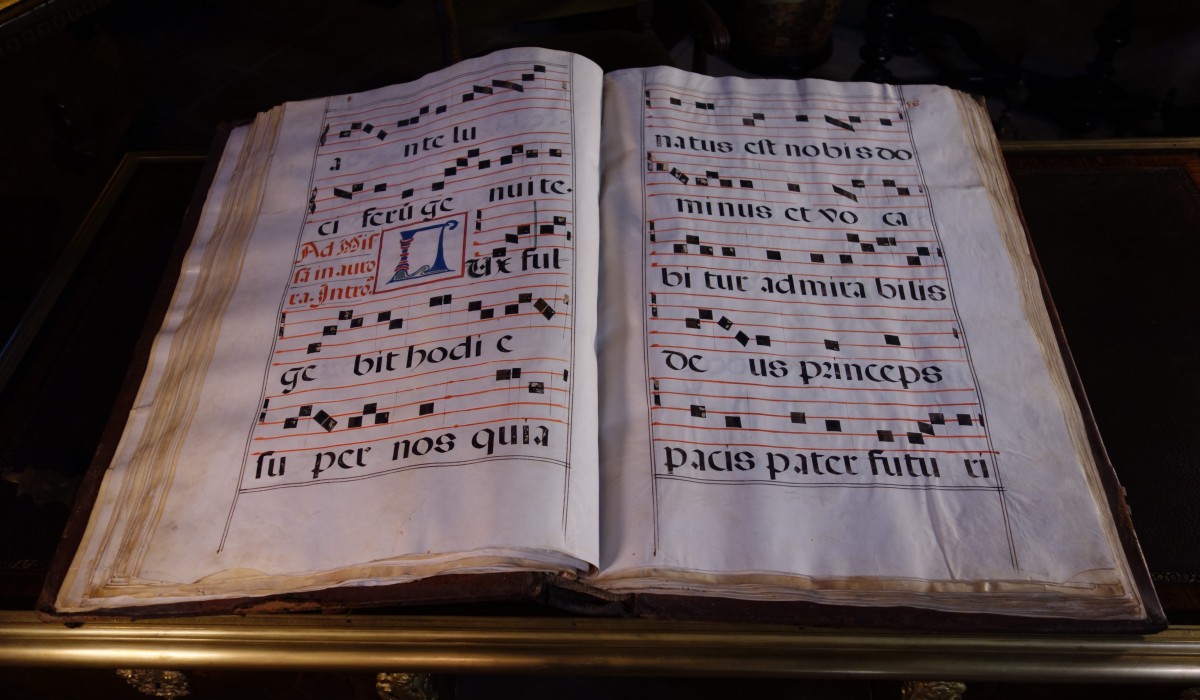 a nte lu
ci ferū ge nuite.
Ad Mis
sā in auro
ra. Intro.
Lux ful
ge bit hodi e
su per nos quia
natus est nobis do
minus et vo ca
bi tur admira bilis
de us princeps
pacis pater futu ri